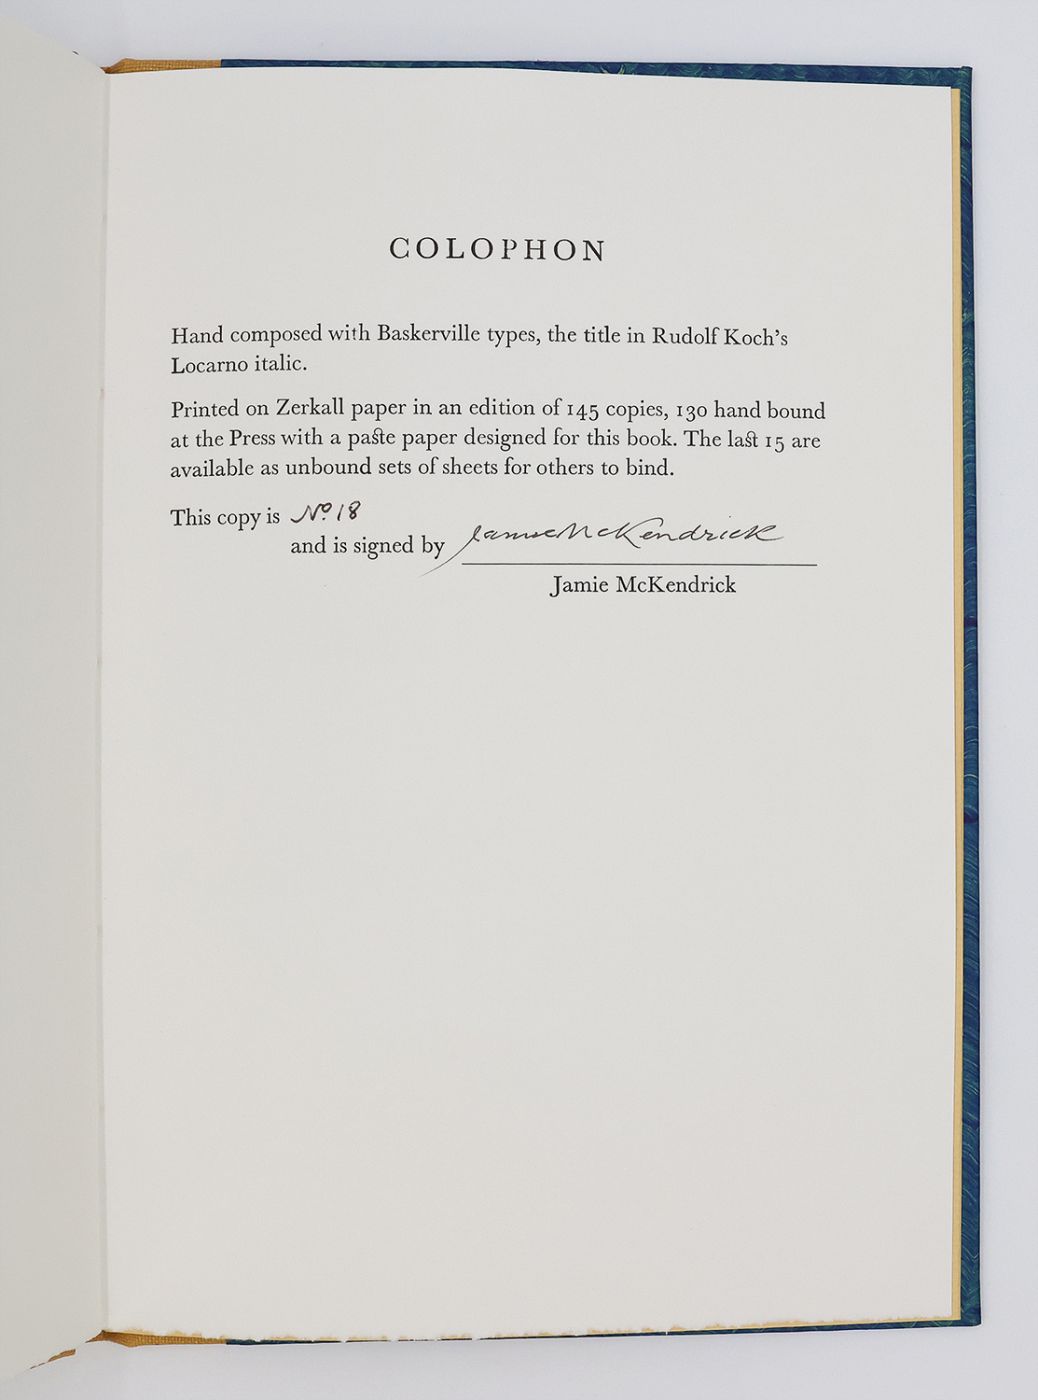 COLOPHON
Hand composed with Baskerville types, the title in Rudolf Koch’s
Locarno italic.
Printed on Zerkall paper in an edition of 145 copies, 130 hand bound
at the Press with a paste paper designed for this book. The last 15 are
available as unbound sets of sheets for others to bind.
This copy is No. 18
and is signed by Jamie McKendrick
Jamie McKendrick